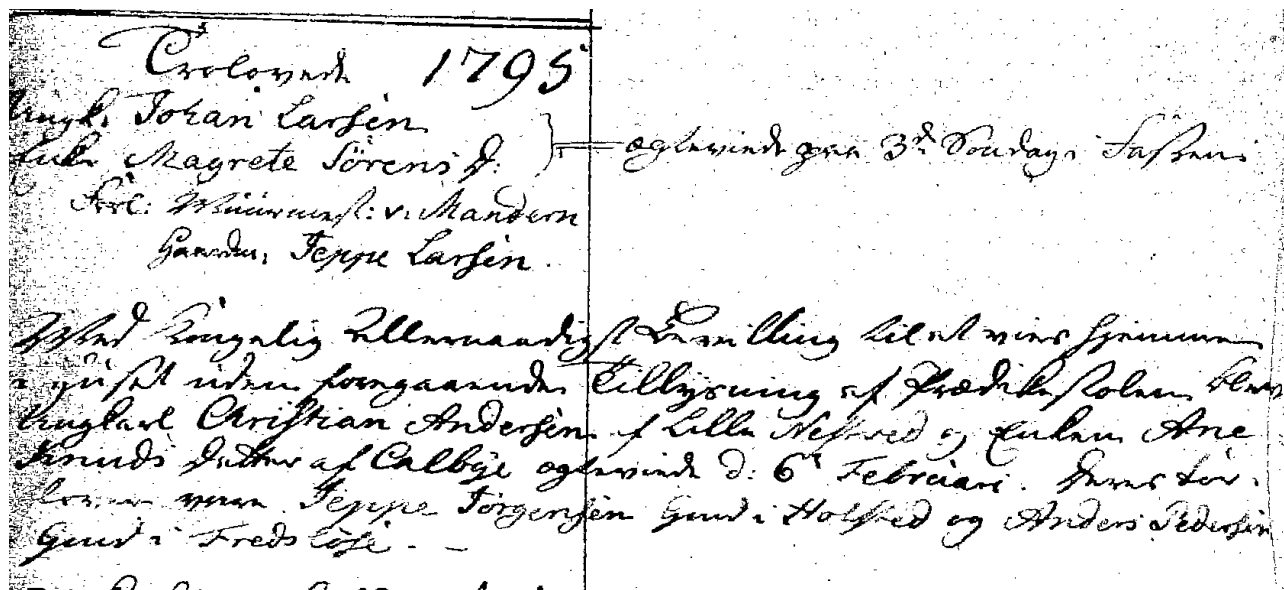 Trolovede 1795
Ungk. Johan Larsen
Enke Magrete Sörens D:
ægteviede paa 3de Söndag i Fasten
Forl: Muurmest: v. Mandern
Gaardm. Jeppe Larsen.
Med Kongelig Allernaadigst Bevilling til at vies hiemme
i Huset uden foregaaende Tillysning af Prædikestolen blev
Ungkarl Christian Andersen af Lille Nestved og Enken Ane
Knuds Datter af Calbye ægteviede d: 6t Februari. Deres for-
lovere vare Jeppe Jörgensen Gmd i Holsted og Anders Pedersen
Gmd i Fredslöse. -